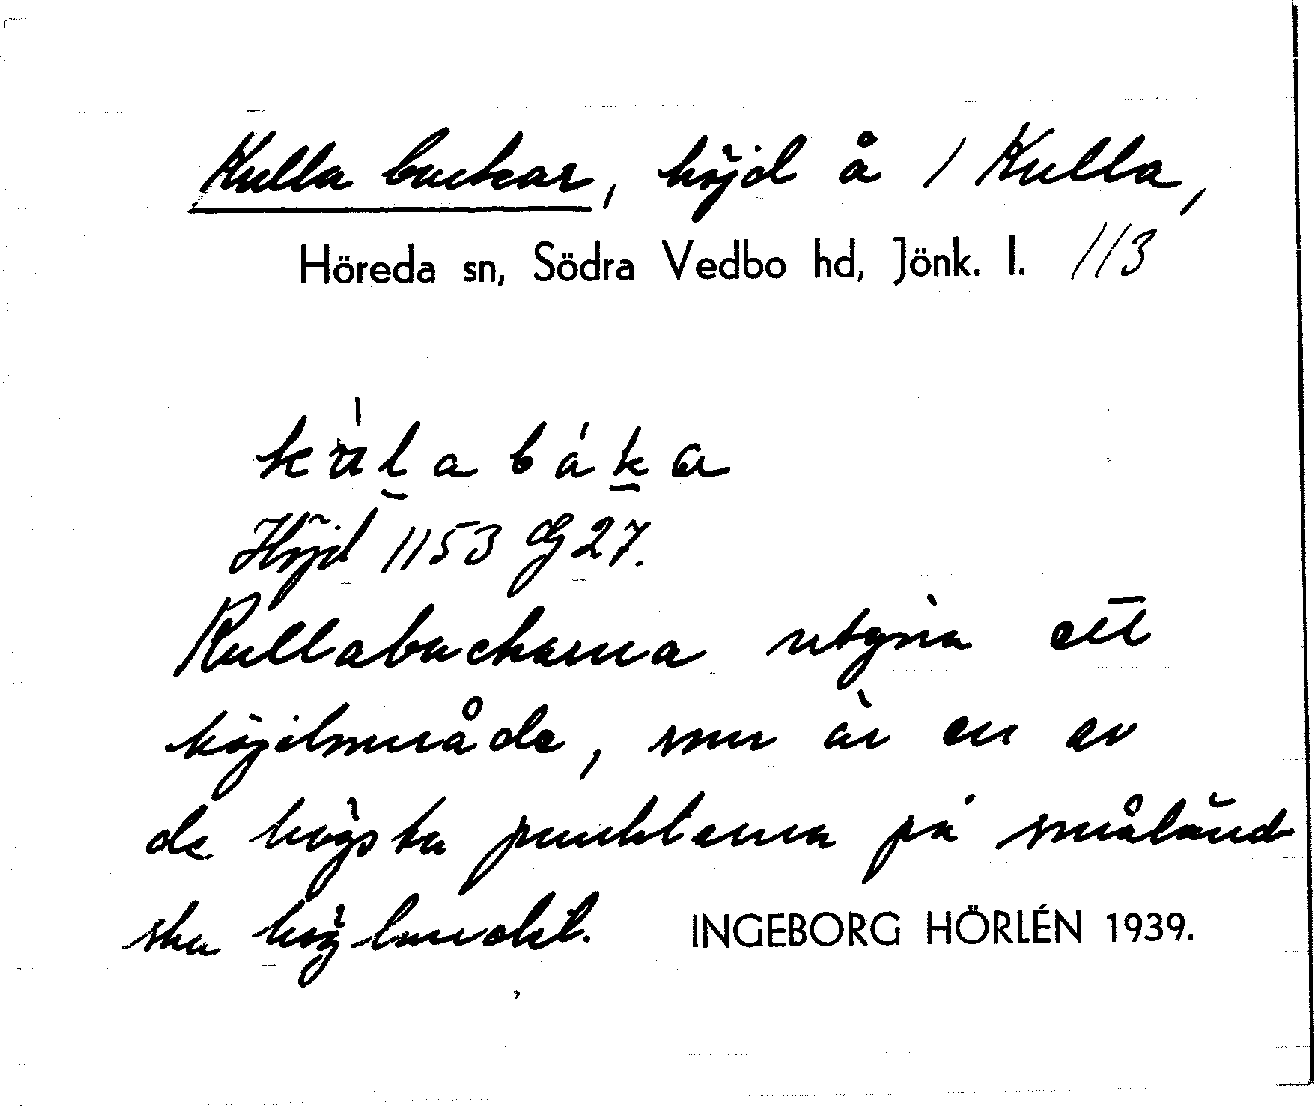 Kulla backar, höjd å 1 Kulla,
Höreda sn, Södra Vedbo hd, Jönk. l. 113
Höjd 1153 G 27.
Kullabackarna utgöra ett
höjdområde, som är en av
de högsta punkterna på småländ-
ska höglandet.
INGEBORG HÖRLÉN 1939.